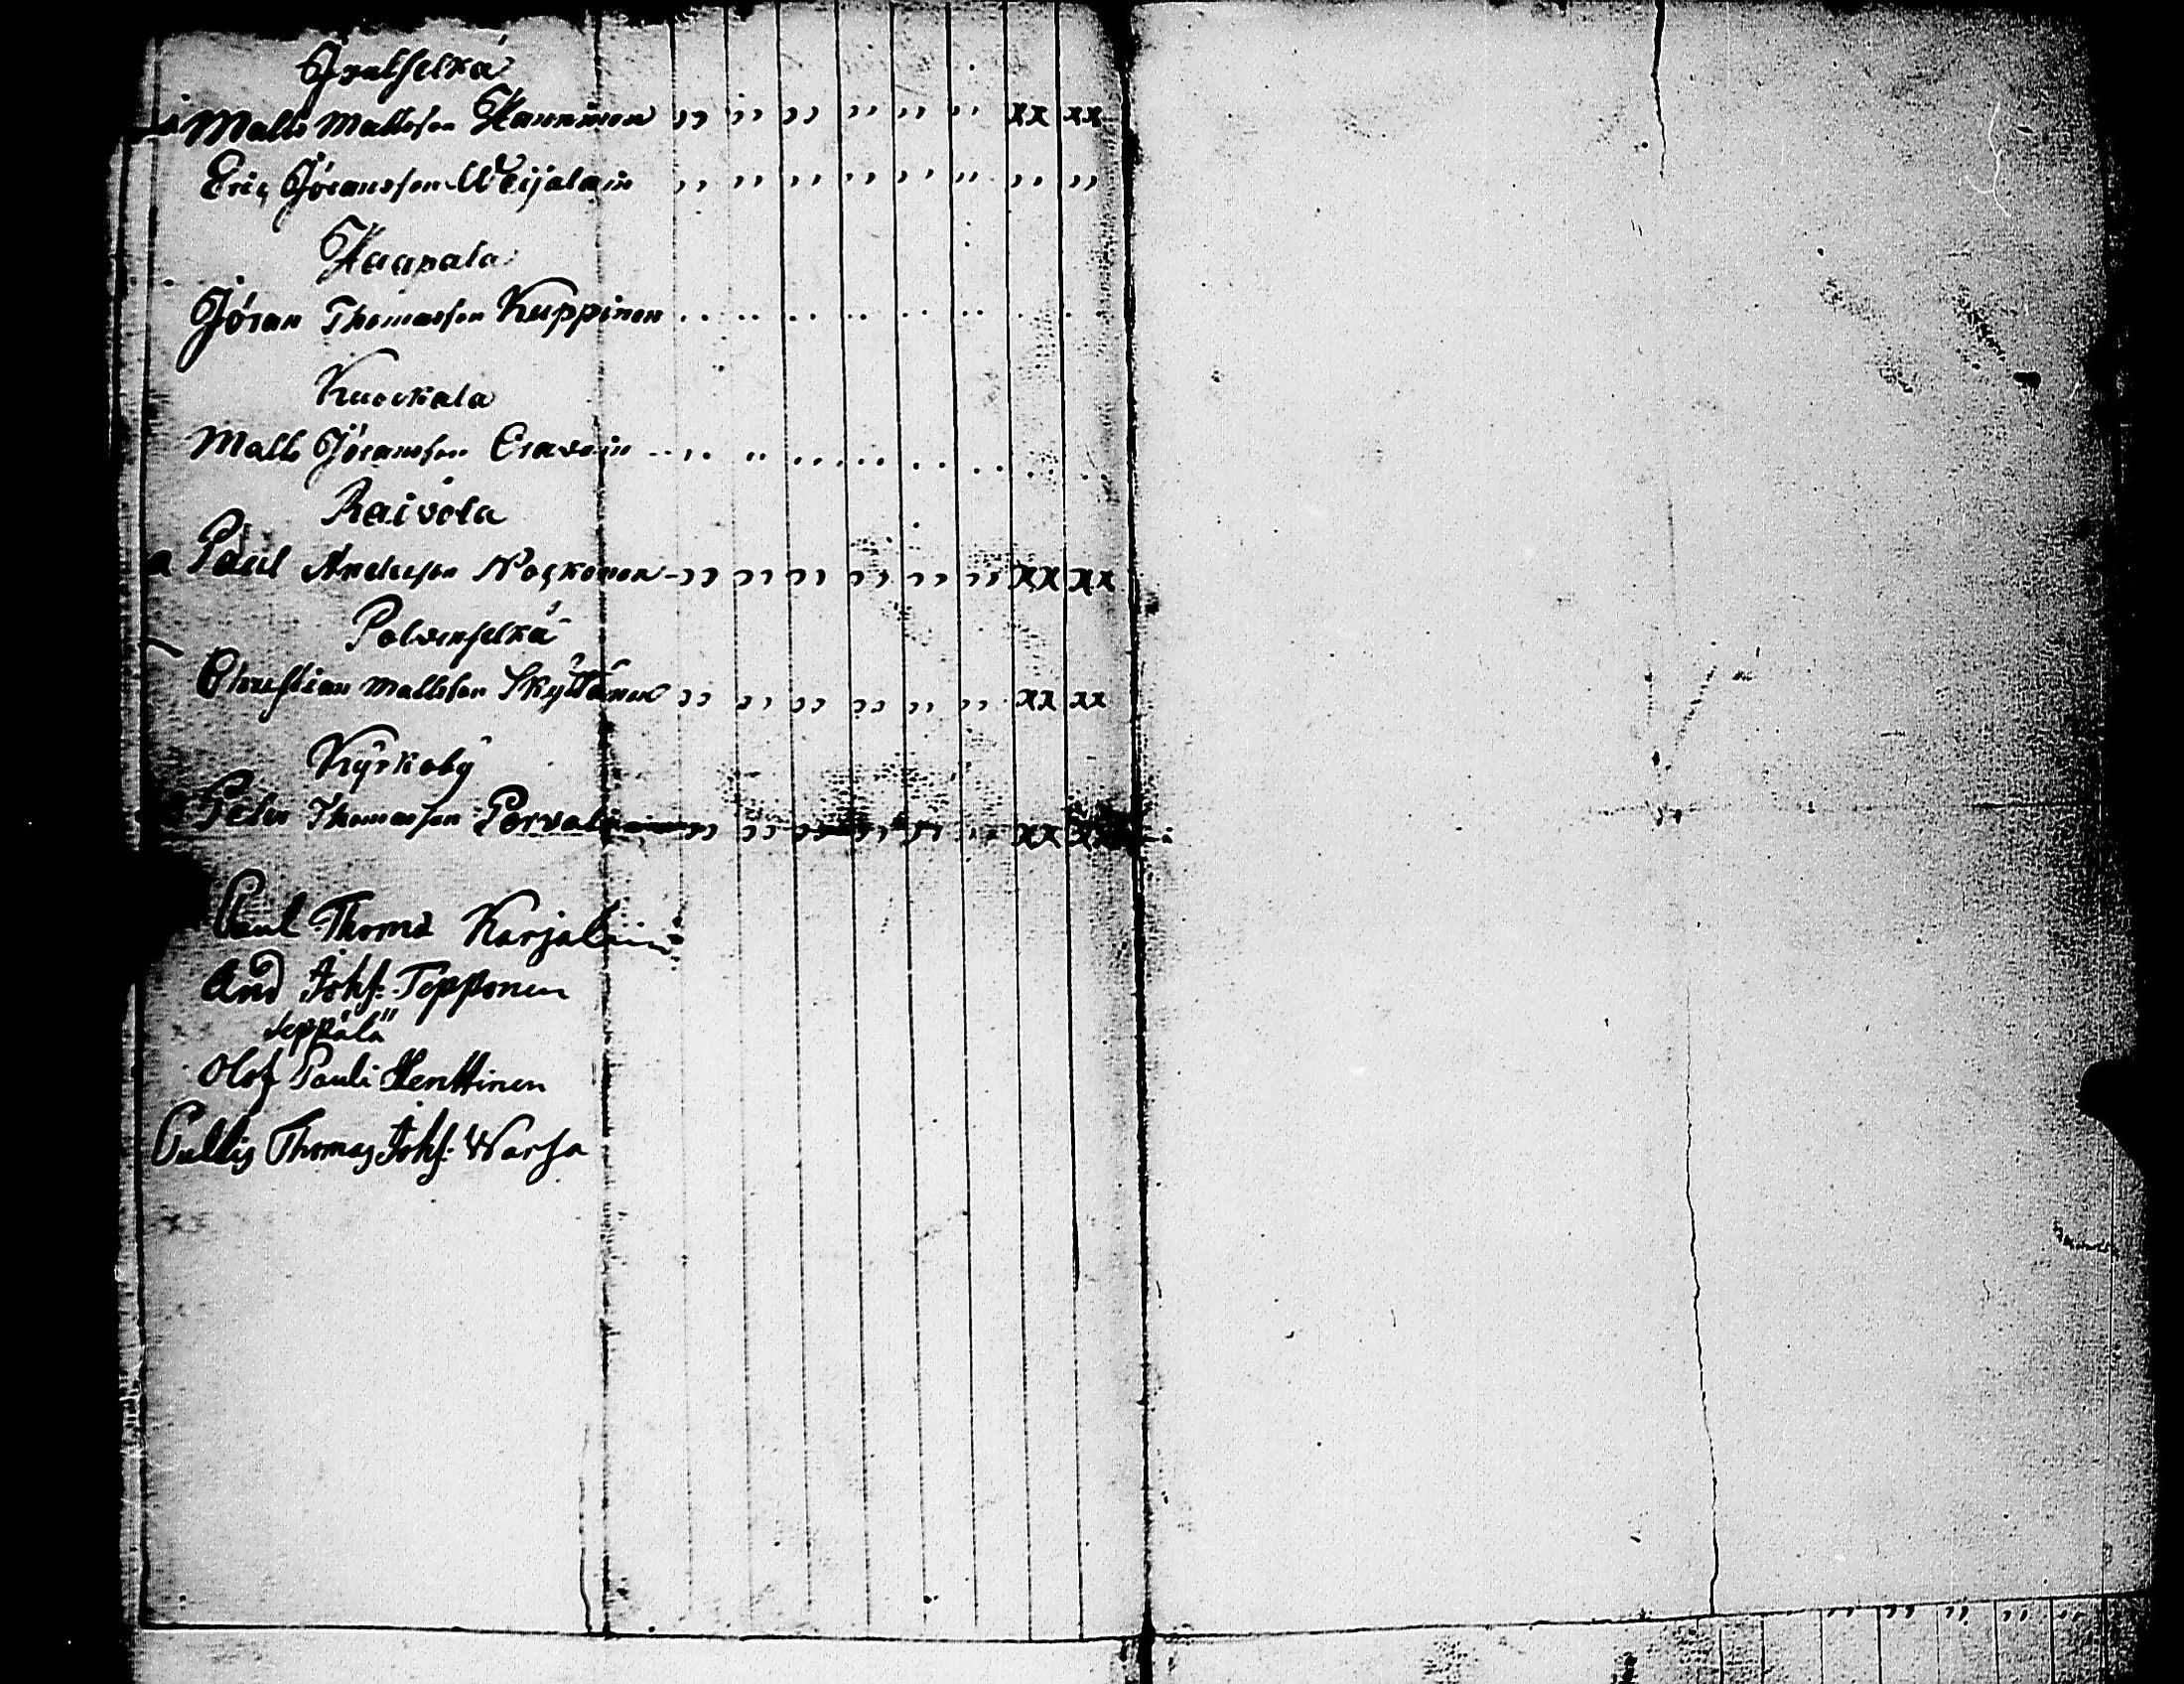 Jvalselkä
Matts Mattsson Hanninen ,, ,, ,, ,, ,, ,, xx xx
Eric Jöransson Weijalain ,, ,, ,, ,, ,, ,, ,, ,,
Haapala
Jöran Thomasson Kuppinen .. .. .. .. .. ..
Kuockala
Matts Jöransson
Raivola
Paul Andersson Noskonen ,, ,, ,, ,, ,, ,, xx xx
Polvenselkä
Christian Mattsson Skyttänen ,, ,, ,, ,, ,, ,, xx xx
Kyrkoby
Peter Thomasson ,, ,, ,, ,, ,, ,, xx xx
Paul Thoms Karjalain
And Johs: Topponen
Seppälä
Olof Pauli Henttinen
Pullis Thomas Johs: Warsa